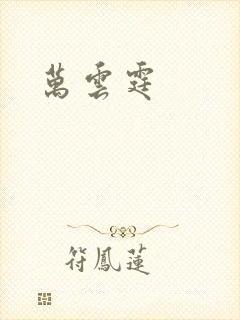 萬雲霆
符鳳蓮